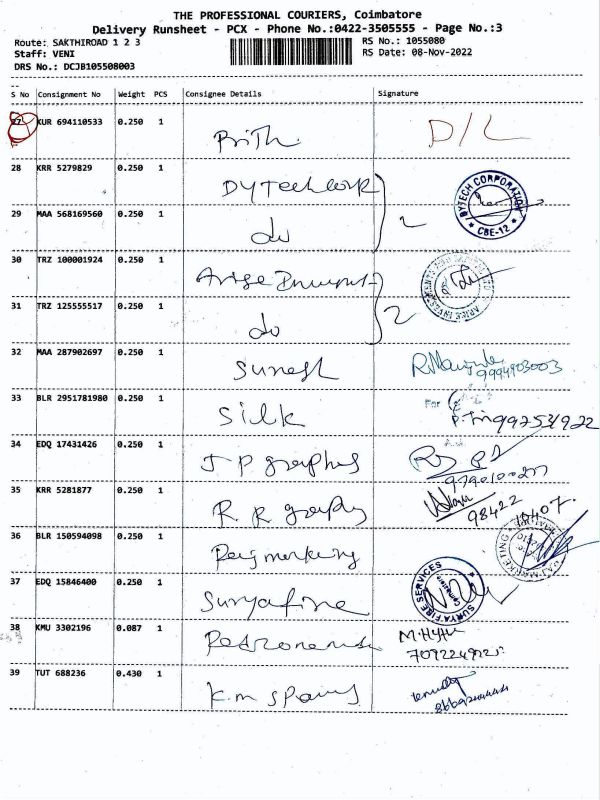 THE PROFESSIONAL COURIERS, Coimbatore
Delivery Runsheet - PCX - Phone No.:0422-3505555 - Page No.:3
Route: SAKTHIROAD 1 2 3
RS No.: 1055080
Staff: VENI
RS Date: 08-Nov-2022
DRS No.: DCJB105508003
S No Consignment No Weight PCS Consignee Details Signature
27 KUR 694110533 0.250 1 Prith D/L
28 KRR 5279829 0.250 1 DYTechcork BYTECH CORPORATION CBE-12
29 MAA 568169560 0.250 1 do 2
30 TRZ 100001924 0.250 1 Arise
31 TRZ 125555517 0.250 1 do 2
32 MAA 287902697 0.250 1 Suresh 9994903003
33 BLR 2951781980 0.250 1 Silk For
34 EDQ 17431426 0.250 1 J P graphes
35 KRR 5281877 0.250 1 R R 98422 18407
36 BLR 150594098 0.250 1 MARKETING
37 EDQ 15846400 0.250 1 Suryafire SURYA FIRE SERVICES
38 KMU 3302196 0.087 1
39 TUT 688236 0.430 1 K.m